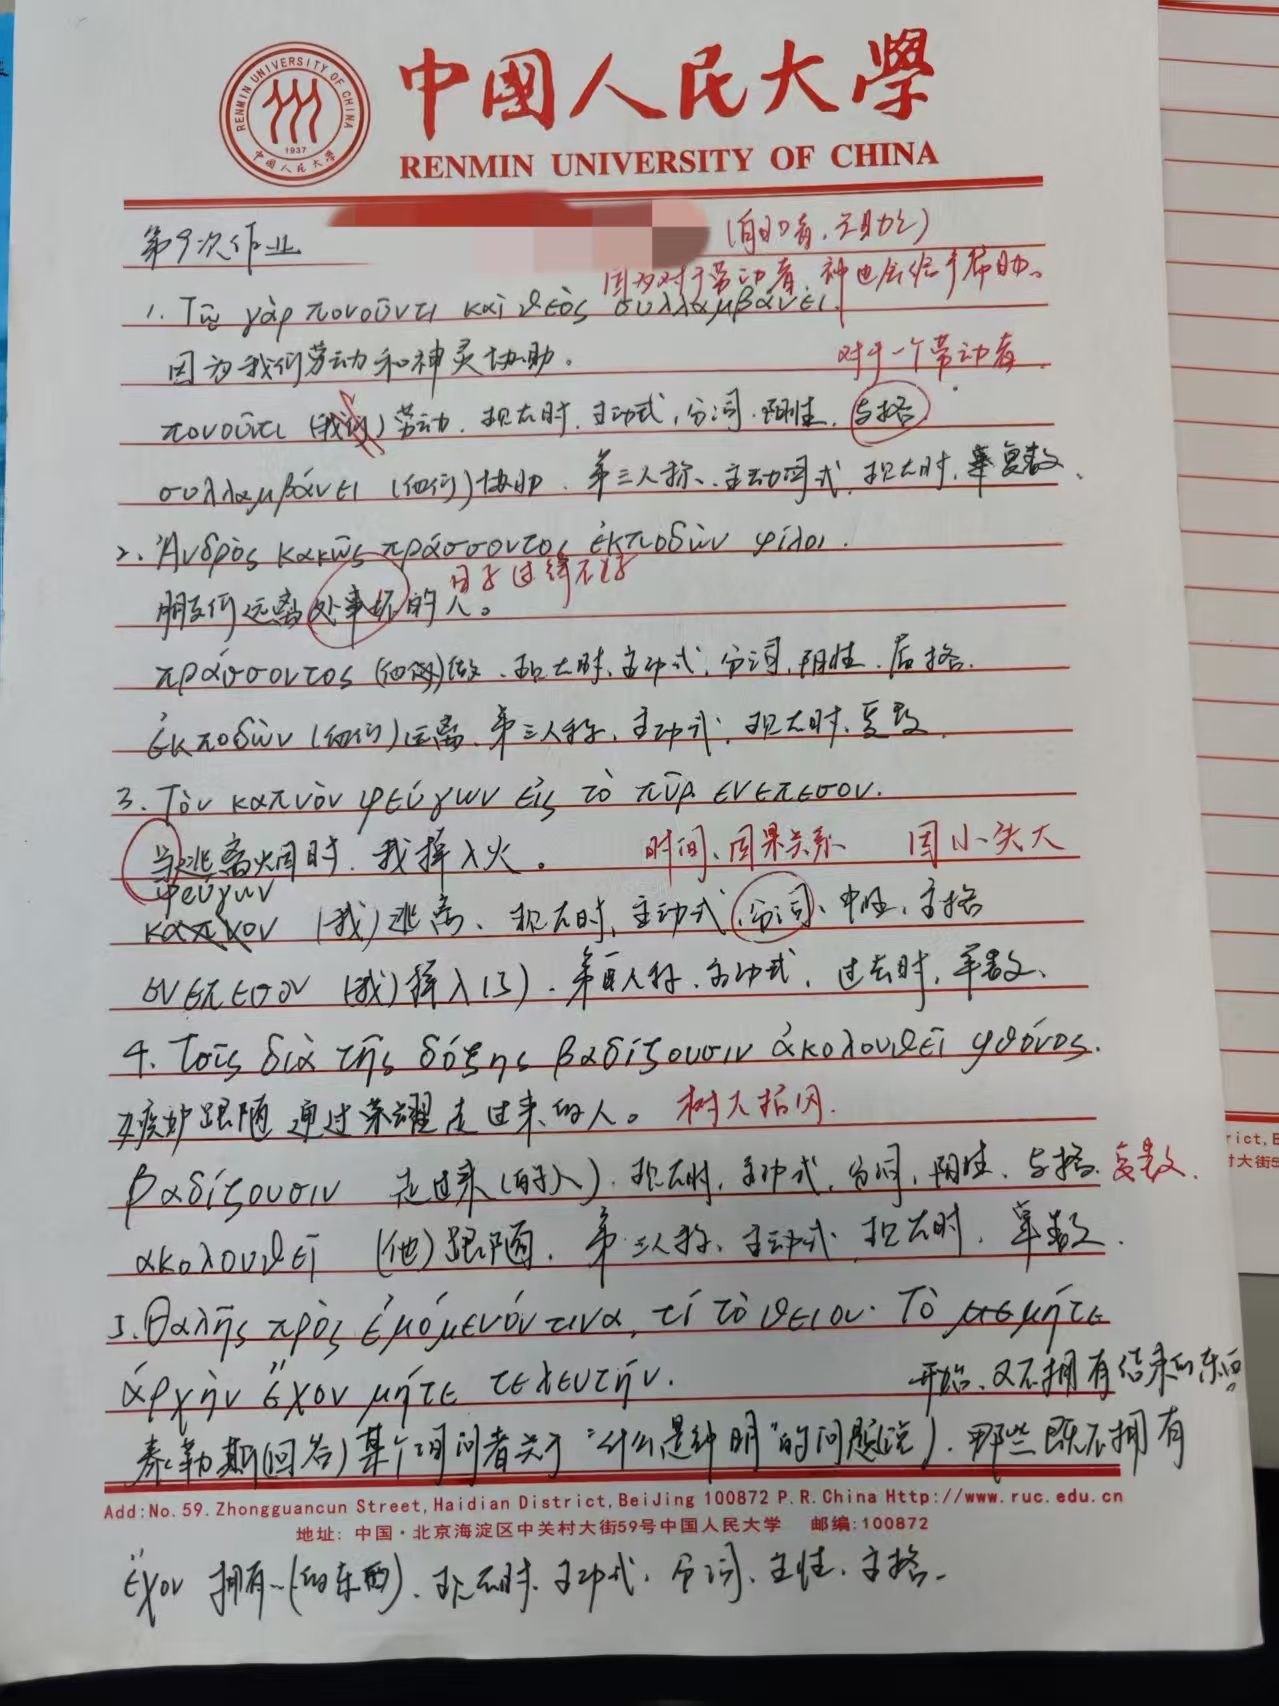 中國人民大學
RENMIN UNIVERSITY OF CHINA
RENMIN UNIVERSITY OF CHINA
1937
中国人民大学
第9次作业
(自助者，天助之)
因为对于劳动者，神也会给予帮助。
1. Τῷ γὰρ πονοῦντι καὶ θεὸς συλλαμβάνει.
因为我们劳动和神灵协助。
对于一个劳动者
πονοῦντι (我们) 劳动、现在时、主动式，分词、阳性，与格
συλλαμβάνει (他们) 协助、第三人称、主动式、现在时，复数、
2. Ἀνδρὸς κακῶς πράσσοντος ἐκποδὼν φίλοι.
日子过得不好
朋友们远离处事坏的人。
πράσσοντος 做、现在时、主动式、分词，阳性、属格.
ἐκποδὼν (他们) 远离、第三人称、主动式、现在时、复数
3. Τὸν καπνὸν φεύγων εἰς τὸ πῦρ ενεπεσον.
当逃离火国时，我掉入火。
时间、因果关系 因小失大
φεύγων
(我) 逃离、现在时，主动式，分词、中性、主格
ενεπεσον (我) 掉入(了)、第一人称、主动式，过去时，单数、
4. Τοῖς διὰ τῆς δόξης βαδίζουσιν ἀκολουθεῖ φθόνος.
嫉妒跟随通过荣耀走过来的人。 树大招风.
βαδίζουσιν 走过来(的人)、现在时，主动式，分词，阳性、与格、复数、
ακολουθεῖ (他) 跟随、第三人称、主动式、现在时，单数.
5. Θαλῆς πρὸς ἐμόμενόν τινα, τί τὸ θειον· Τὸ μήτε
ἀρχὴν ἔχον μήτε τελευτήν.
开始、又不拥有结束的东西
泰勒斯(回答)某个询问者关于“什么是神明”的问题(说)，那些既不拥有
Add:No.59.Zhongguancun Street,Haidian District,BeiJing 100872 P.R.China Http://www.ruc.edu.cn
地址：中国·北京海淀区中关村大街59号中国人民大学 邮编:100872
ἔχον 拥有~(的东西)、现在时、主动式、分词、主性、主格.